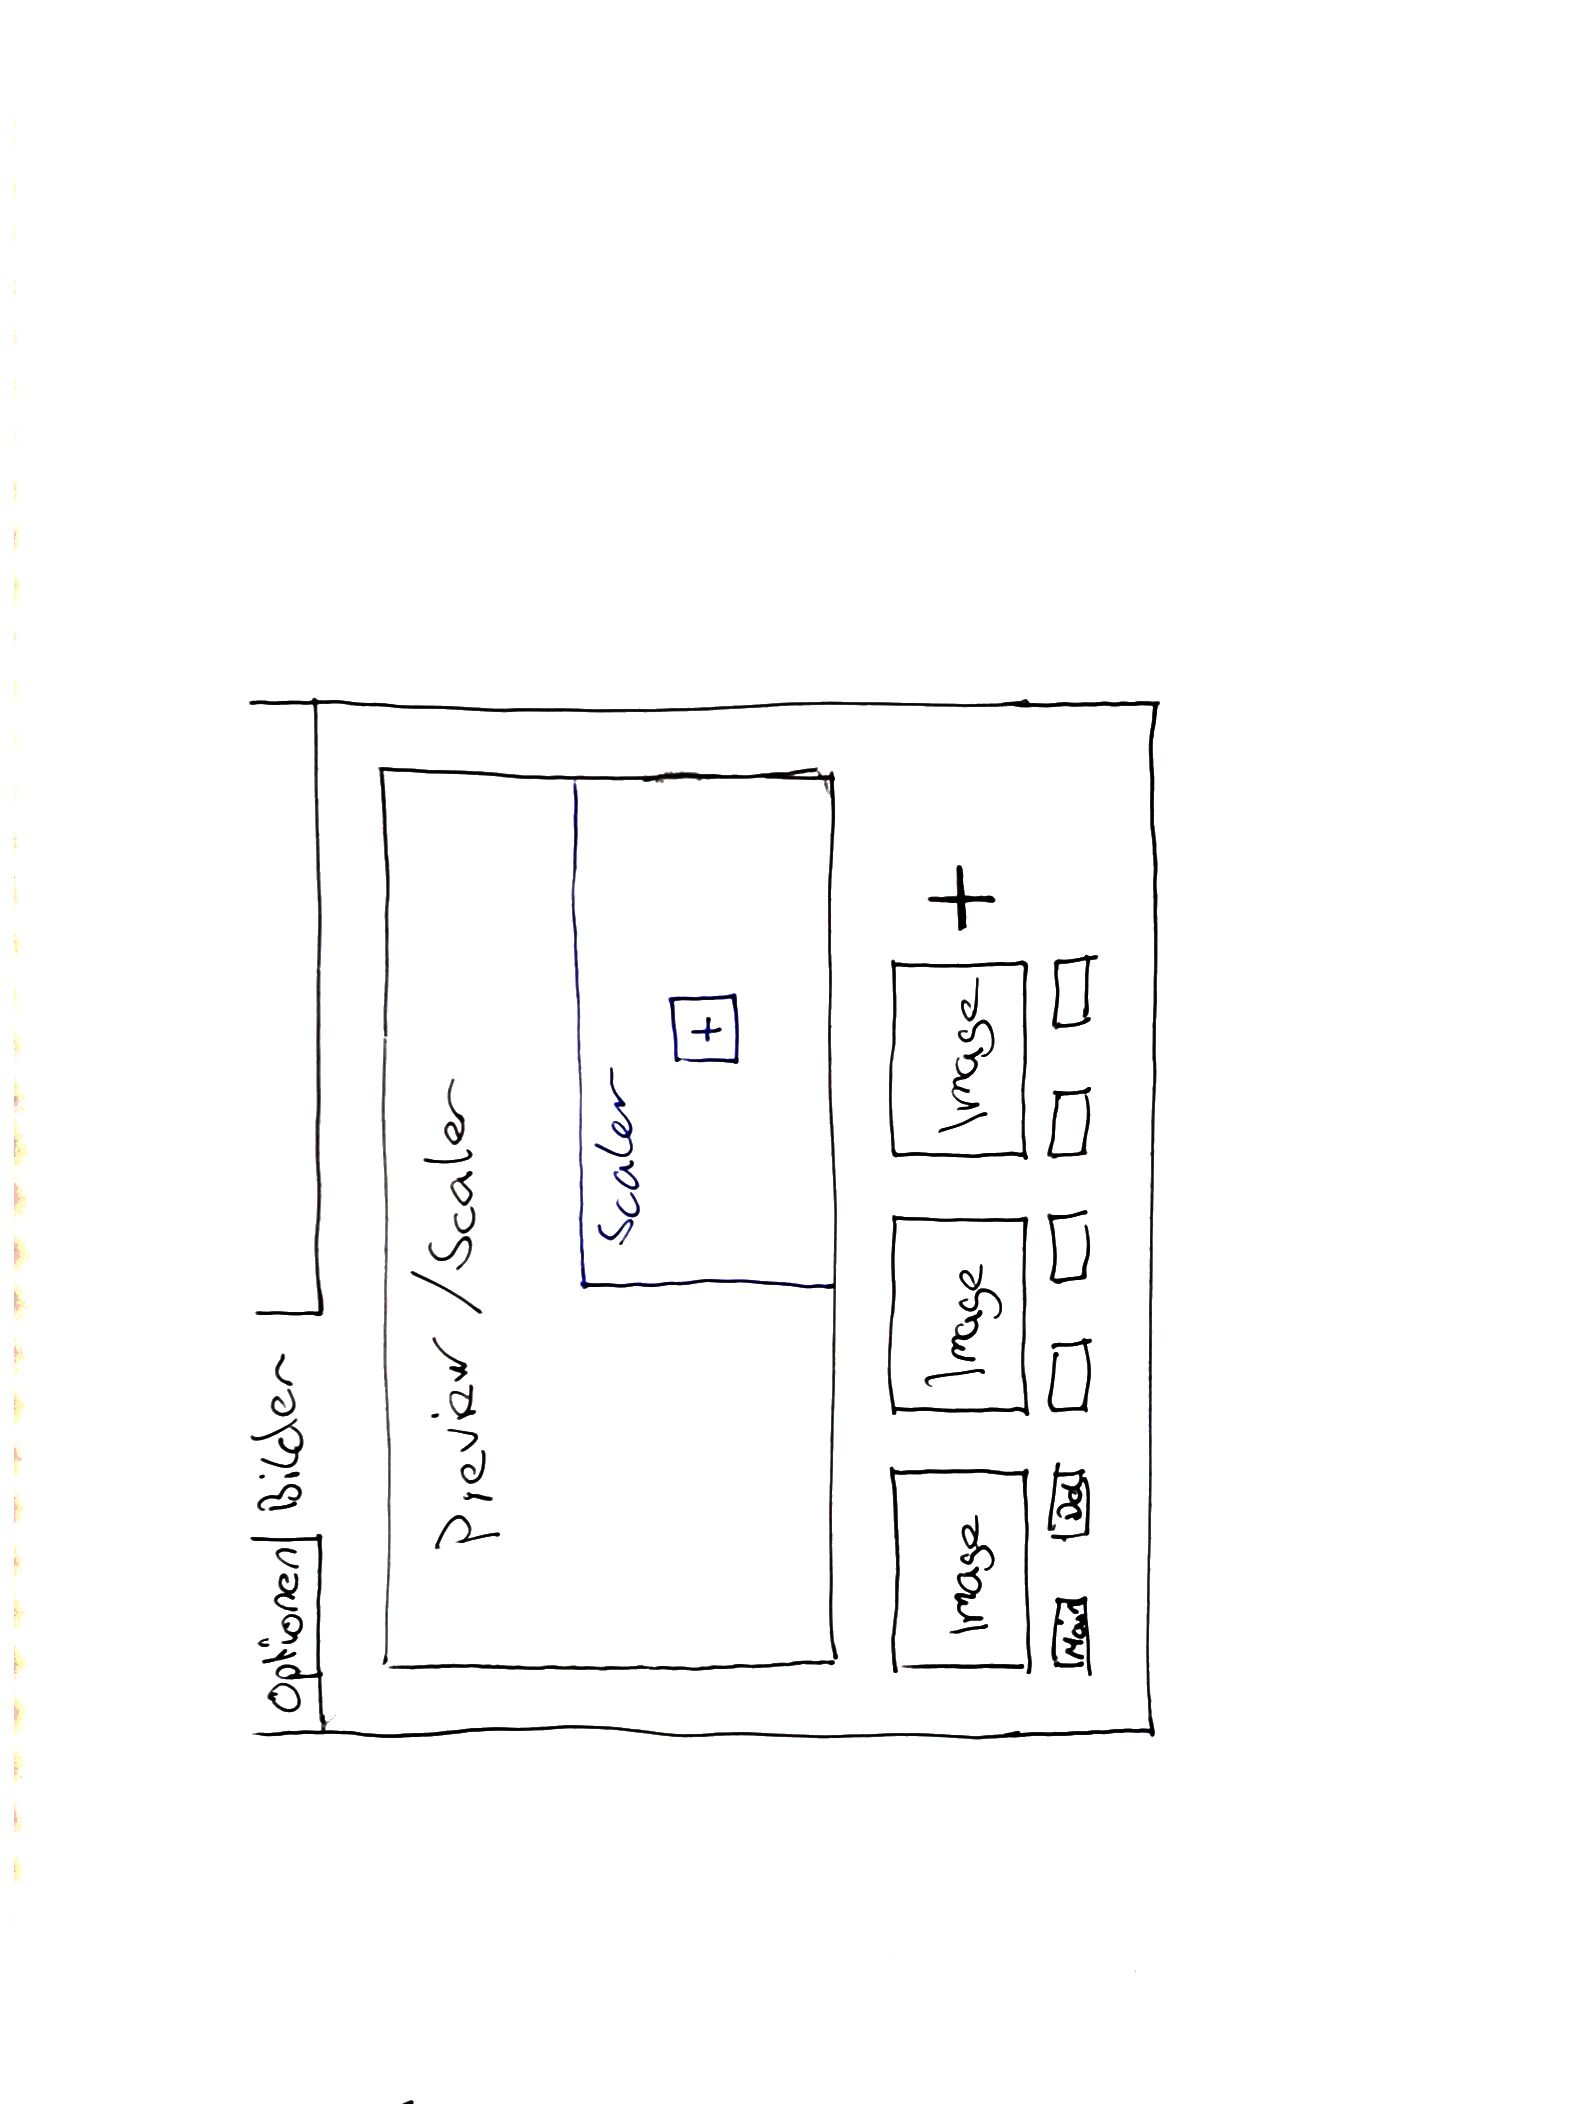 Optionen Bilder
Preview / Scaler
Scaler
+
Image Image Image +
Main Del